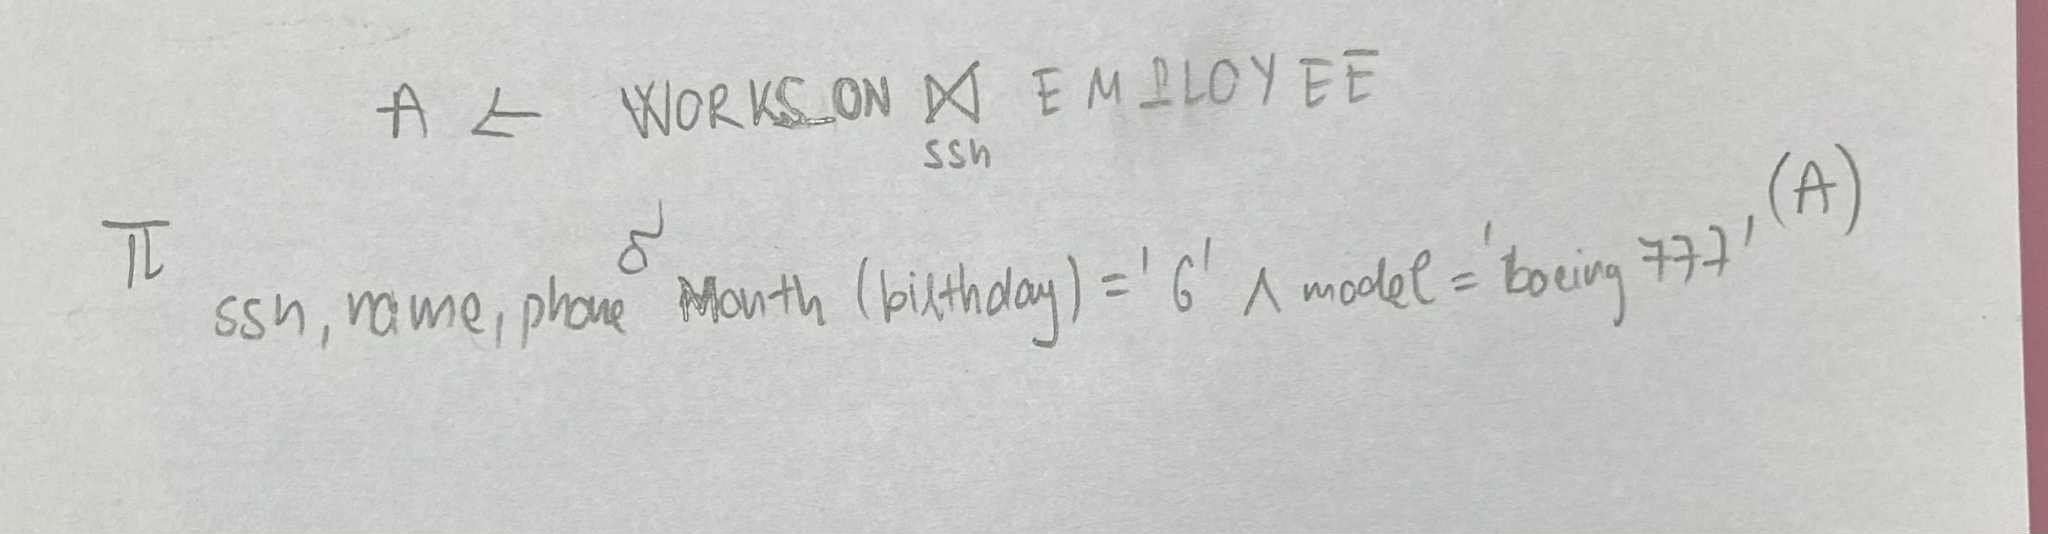 A ← WORKS_ON ⋈ EMPLOYEE
ssn
π ssn, name, phone σ Month (birthday) = '6' ∧ model = 'boeing 777' (A)